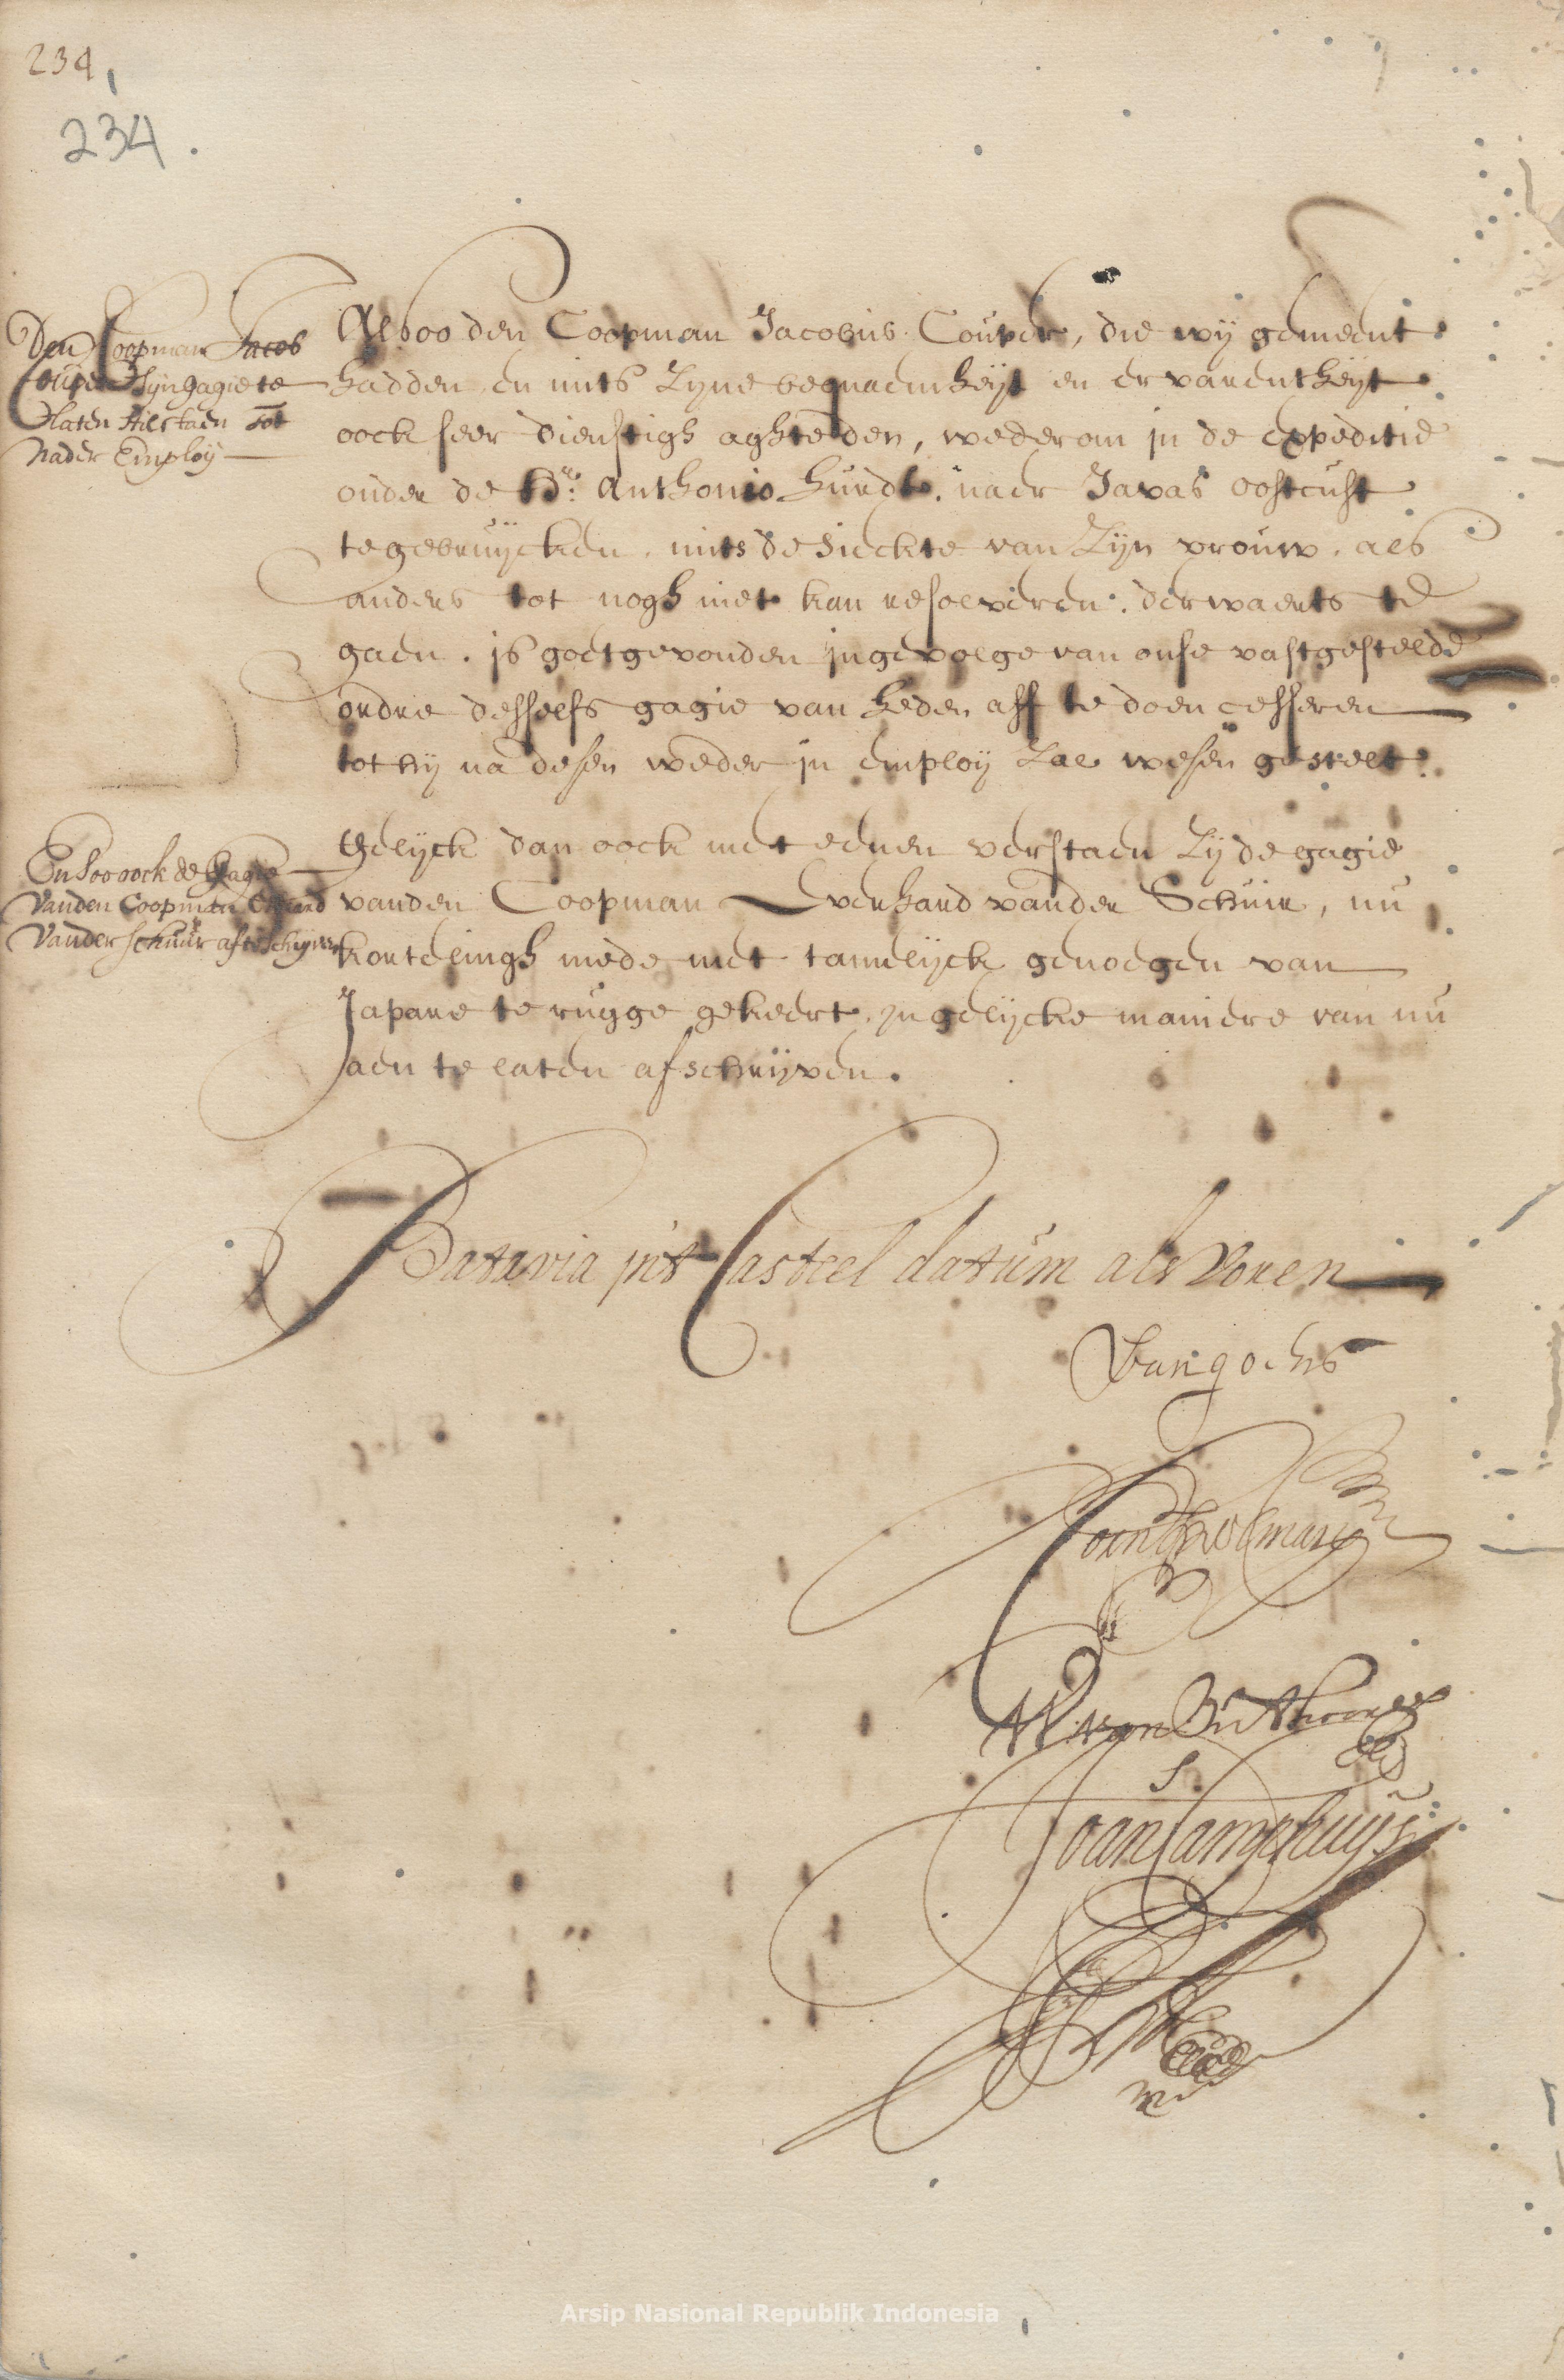 234
234.
Den Coopman Jacob
Couper Sijn gagie te
Laten stilstaen tot
nader Employ
Alsoo den Coopman Jacobus Couper, die wij gemeent
hadden en mits zijne bequaemheijt en ervarentheijt
oock seer dienstigh aghteden, wederom in de expeditie
onder de Hr: Anthonio Hurdt naer Javas oostcust
te gebruijcken, mits de sieckte van zijn vrouw, als
anders tot nogh niet kan resolveren derwaerts te
gaen. is goetgevonden ingevolge van onse vastgestelde
ordre desselfs gagie van heden aff te doen cesseren
tot hij na desen weder in employ zal wesen gestelt.
En soo oock de gagie
vanden Coopman Everard
vander Schuur af te schrijven
Gelijck dan oock met eenen verstaen zij de gagie
vanden Coopman Everhard vander Schuir, nu
kortelingh mede met tamelijck genoegen van
Japare te rugge gekeert, in gelijcke maniere van nu
aen te laten afschrijven.
Batavia int Casteel datum als Voren
Van goens
Willem van Outhoorn
Joan Camphuys
Arsip Nasional Republik Indonesia